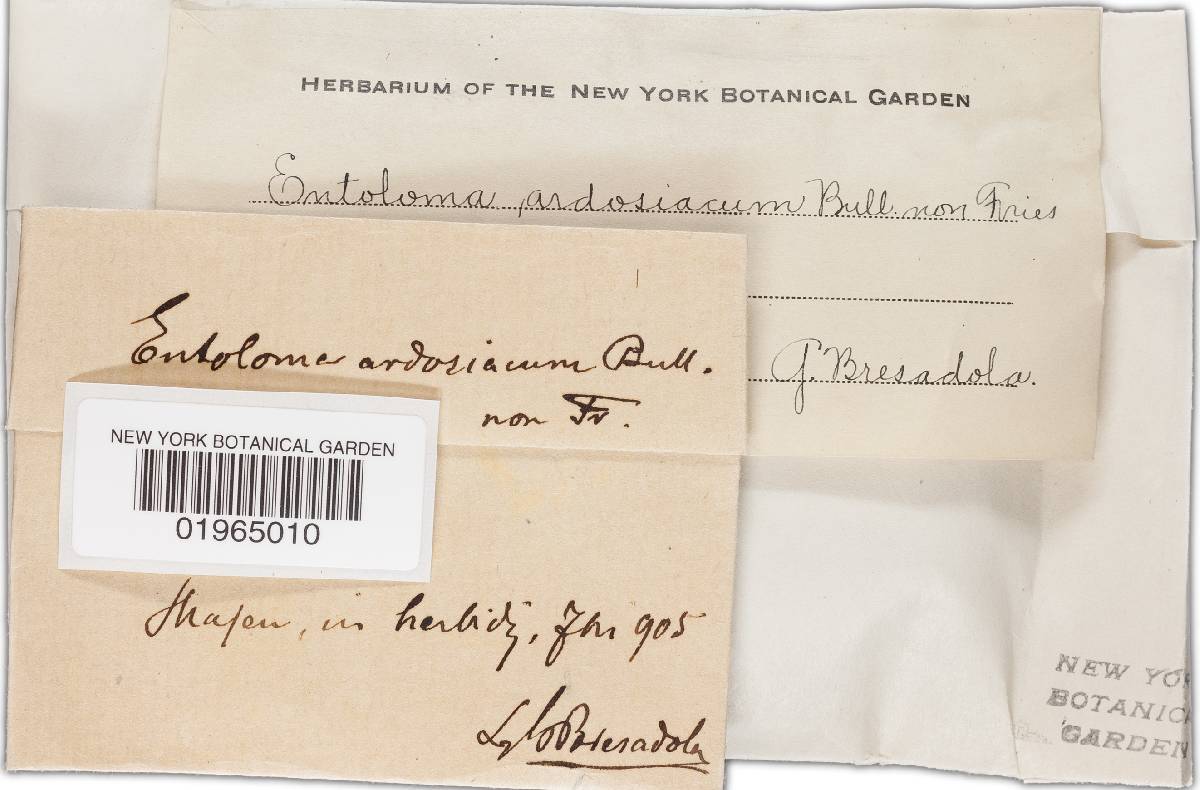 HERBARIUM OF THE NEW YORK BOTANICAL GARDEN
Entoloma ardosiacum Bull. non Fries
G. Bresadola.
Entoloma ardosiacum Bull.
non Fr.
NEW YORK BOTANICAL GARDEN
01965010
in herbidis, 905
Bresadola
NEW YO
BOTANIC
GARDEN